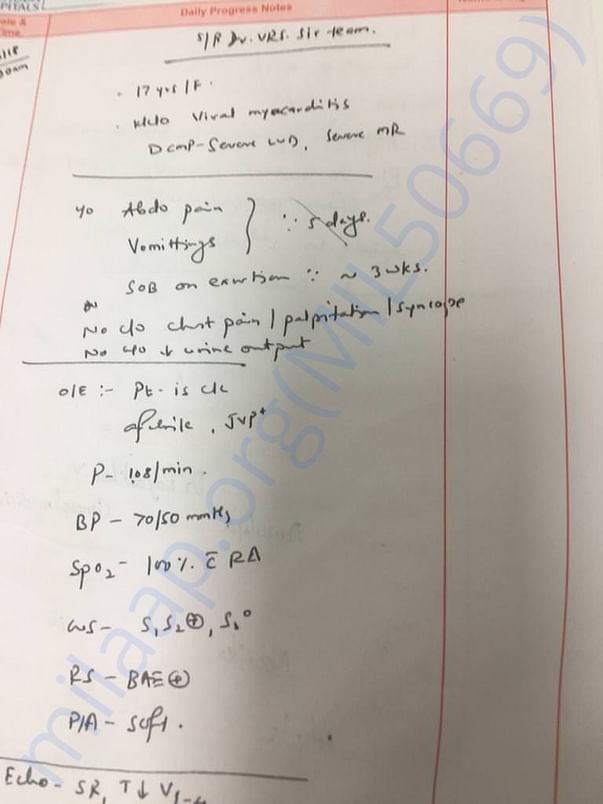 PITALS
Daily Progress Notes
ate &
Time
S/B Dr. VRS. Sir team.
- 17 yrs / F.
. K/c/o Viral myocarditis
DCMP - Severe LVD, Severe MR
c/o Abdo pain
Vomittings } ∵ 5 days.
SOB on exertion ∵ ~ 3 wks.
No c/o chest pain / palpitation / syncope
No c/o ↓ urine output
O/E :- Pt. is c/c
afebrile, JVP+
P - 108/min.
BP - 70/50 mmHg
SpO2 - 100% c̄ RA
CVS - S1 S2 ⊕, S3°
RS - BAE ⊕
P/A - Soft.
Echo - SR, T↓ V1-4
milaap.org(MIL506669)